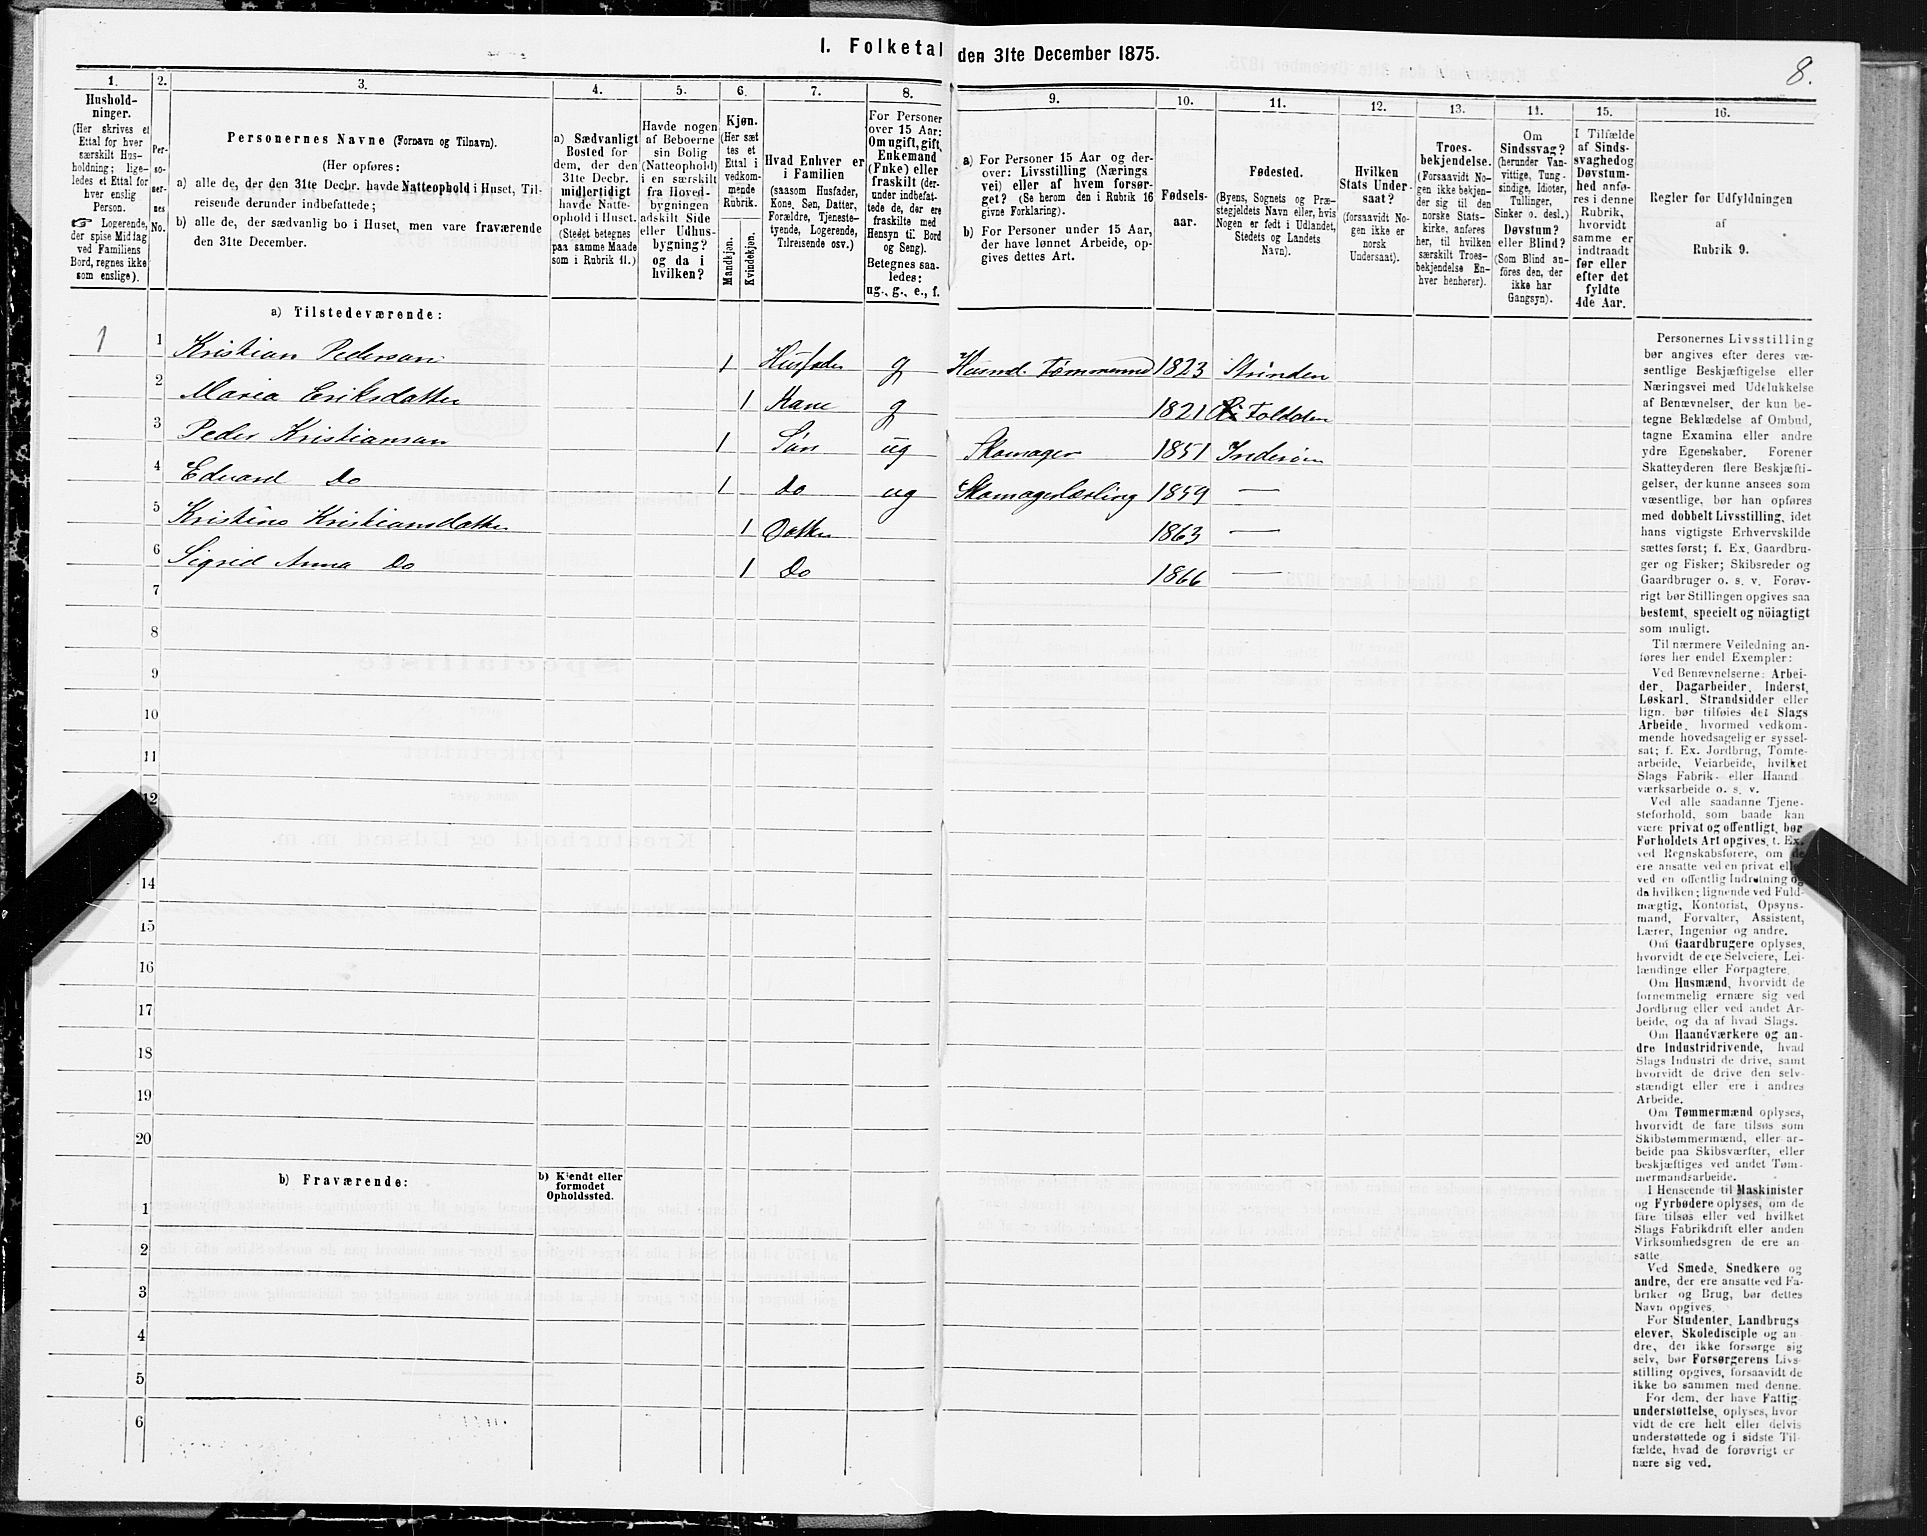 I. Folketal den 31te December 1875.
8.
1.
Hushold-
ninger.
(Her skrives et
Ettal for hver
særskilt Hus-
holdning; lige-
ledes et Ettal for
hver enslig
Person.
☞ Logerende,
der spise Middag
ved Familiens
Bord, regnes ikke
som enslige).
2.
Per-
so-
ner-
nes
No.
3.
Personernes Navne (Fornavn og Tilnavn).
(Her opføres:
a) alle de, der den 31te Decbr. havde Natteophold i Huset, Til-
reisende derunder indbefattede;
b) alle de, der sædvanlig bo i Huset, men vare fraværende
den 31te December.
4.
a) Sædvanligt
Bosted for
dem, der den
31te Decbr.
midlertidigt
havde Natte-
ophold i Huset.
(Stedet betegnes
paa samme Maade
som i Rubrik 11.)
5.
Havde nogen
af Beboerne
sin Bolig
(Natteophold)
i en særskilt
fra Hoved-
bygningen
adskilt Side
eller Udhus-
bygning?
og da i
hvilken?
6.
Kjøn.
(Her sæt
tes et
Ettal i
vedkom-
mende
Rubrik.
Mandkjøn.
Kvindekjøn.
7.
Hvad Enhver er
i Familien
(saasom Husfader,
Kone, Søn, Datter,
Forældre, Tjeneste-
tyende, Logerende,
Tilreisende osv.)
8.
For Personer
over 15 Aar:
Om ugift, gift,
Enkemand
(Enke) eller
fraskilt (der-
under indbefat-
tede de, der ere
fraskilte med
Hensyn til Bord
og Seng).
Betegnes saa-
ledes:
ug., g., e., f.
9.
a) For Personer 15 Aar og der-
over: Livsstilling (Nærings
vei) eller af hvem forsør-
get? (Se herom den i Rubrik 16
givne Forklaring).
b) For Personer under 15 Aar,
der have lønnet Arbeide, op-
gives dettes Art.
10.
Fødsels-
aar.
11.
Fødested.
(Byens, Sognets og Præ-
stegjeldets Navn eller, hvis
Nogen er født i Udlandet,
Stedets og Landets
Navn).
12.
Hvilken
Stats Under-
saat?
(forsaavidt No-
gen ikke er
norsk
Undersaat).
13.
Troes-
bekjendelse.
(Forsaavidt No-
gen ikke bekjen-
der sig til den
norske Stats-
kirke, anføres
her, til hvilken
særskilt Troes-
bekjendelse En-
hver henhører).
14.
Om
Sindssvag?
(herunder Van-
vittige, Tung-
sindige, Idioter,
Tullinger,
Sinker o. desl.)
Døvstum?
eller Blind?
(Som Blind an-
føres den, der
ikke har
Gangsyn).
15.
I Tilfælde
af Sinds-
svaghed og
Døvstum-
hed anfø-
res i denne
Rubrik,
hvorvidt
samme er
indtraadt
før eller
efter det
fyldte
4de Aar.
16.
Regler for Udfyldningen
af
Rubrik 9.
a) Tilstedeværende:
1 1 Kristian Pedersen 1 Husfader g Husmd. Tømmermd 1823 Strinden
2 Maria Eriksdatter 1 Kone g 1821 Foldden
3 Peder Kristiansen 1 Søn ug Skomager 1851 Inderøen
4 Edvard Do 1 do ug Skomagerlærling 1859 —
5 Kristine Kristiansdatter 1 Datter 1863 —
6 Sigrid Anna Do 1 Do 1866 —
7
8
9
10
11
12
14
15
16
17
18
19
20
b) Fraværende:
b) Kjendt eller
formodet
Opholdssted.
1
2
3
4
5
6
Personernes Livsstilling
bør angives efter deres væ-
sentlige Beskjæftigelse eller
Næringsvei med Udelukkelse
af Benævnelser, der kun be-
tegne Beklædelse af Ombud,
tagne Examina eller andre
ydre Egenskaber. Forener
Skatteyderen flere Beskjæfti-
gelser, der kunne ansees som
væsentlige, bør han opføres
med dobbelt Livsstilling, idet
hans vigtigste Erhvervskilde
sættes først; f. Ex. Gaardbru-
ger og Fisker; Skibsreder og
Gaardbruger o. s. v. Forøv-
rigt bør Stillingen opgives saa
bestemt, specielt og nöiagtigt
som muligt.
Til nærmere Veiledning an-
føres her endel Exempler:
Ved Benævnelserne: Arbei-
der, Dagarbeider, Inderst,
Løskarl, Strandsidder eller
lign. bør tilføies det Slags
Arbeide, hvormed vedkom-
mende hovedsagelig er syssel-
sat; f. Ex. Jordbrug, Tomte-
arbeide, Veiarbeide, hvilket
Slags Fabrik- eller Haand
værksarbeide o. s. v.
Ved alle saadanne Tjene-
steforhold, som baade kan
være privat og offentligt, bør
Forholdets Art opgives, t. Ex.
ved Regnskabsførere, om de
ere ansatte ved en privat eller
ved en offentlig Indretning og
da hvilken; lignende ved Fuld-
mægtig, Kontorist, Opsyns-
mand, Forvalter, Assistent,
Lærer, Ingeniør og andre.
Om Gaardbrugere oplyses,
hvorvidt de ere Selveiere, Lei-
lændinge eller Forpagtere.
Om Husmænd, hvorvidt de
fornemmelig ernære sig ved
Jordbrug eller ved andet Ar-
beide, og da af hvad Slags.
Om Haandværkere og an-
dre Industridrivende, hvad
Slags Industri de drive, samt
hvorvidt de drive den selv-
stændigt eller ere i andres
Arbeide.
Om Tømmermænd oplyses,
hvorvidt de fare tilsøs som
Skibstømmermænd, eller ar-
beide paa Skibsværfter, eller
beskjæftiges ved andet Tøm-
mermandsarbeide.
I Henseende til Maskinister
og Fyrbødere oplyses, om de
fare tilsøs eller ved hvilket
Slags Fabrikdrift eller anden
Virksomhedsgren de ere an-
satte.
Ved Smede, Snedkere og
andre, der ere ansatte ved Fa-
briker og Brug, bør dettes
Navn opgives.
For Studenter, Landbrugs
elever, Skoledisciple og an-
dre, der ikke forsørge sig
selv, bør Forsørgerens Livs-
stilling opgives, forsaavidt de
ikke bo sammen med denne.
For dem, der have Fattig-
understøttelse, oplyses, hvor
vidt de ere helt eller delvis
understøttede og i sidste Til-
fælde, hvad de forøvrigt er
nære sig ved.